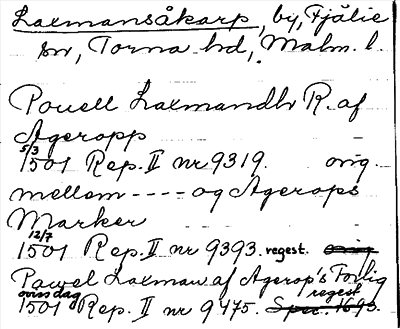 Laxmansåkarp, by, Fjälie
sn, Torna hd, Malm. l.
Powell Laxmandh R. af
Ageropp
5/3
1501 Rep. II nr 9319. orig.
mellem - - - - og Agerops
Marker
12/7
1501 Rep. II nr 9393. regest. orig
Pawel Laxman af Agerop's Forlig
onsdag regest
1501 Rep. II nr 9475. Spec. 1693.